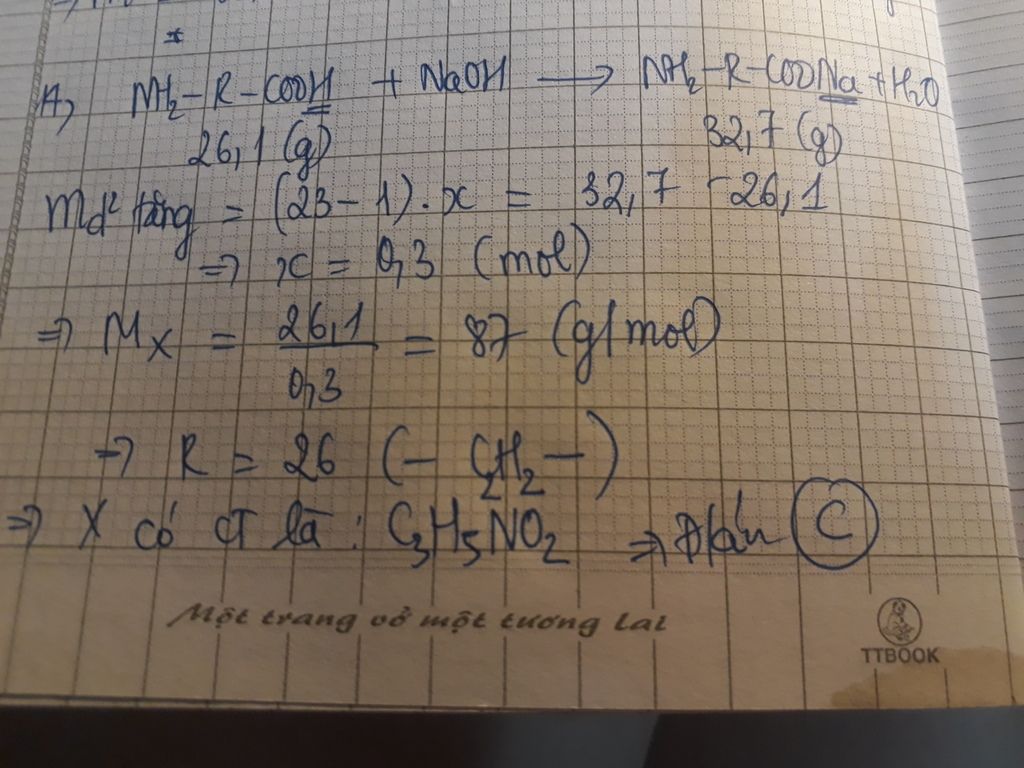 *
A, NH2-R-COOH + NaOH → NH2-R-COONa + H2O
26,1 (g) 32,7 (g)
Md² tăng = (23 - 1). x = 32,7 - 26,1
=> x = 0,3 (mol)
=> Mx = 26,1 / 0,3 = 87 (g/mol)
=> R = 26 (- C2H2 -)
=> X có CT là : C3H5NO2 => Đ/án C
Một trang vở một tương lai
TTBOOK